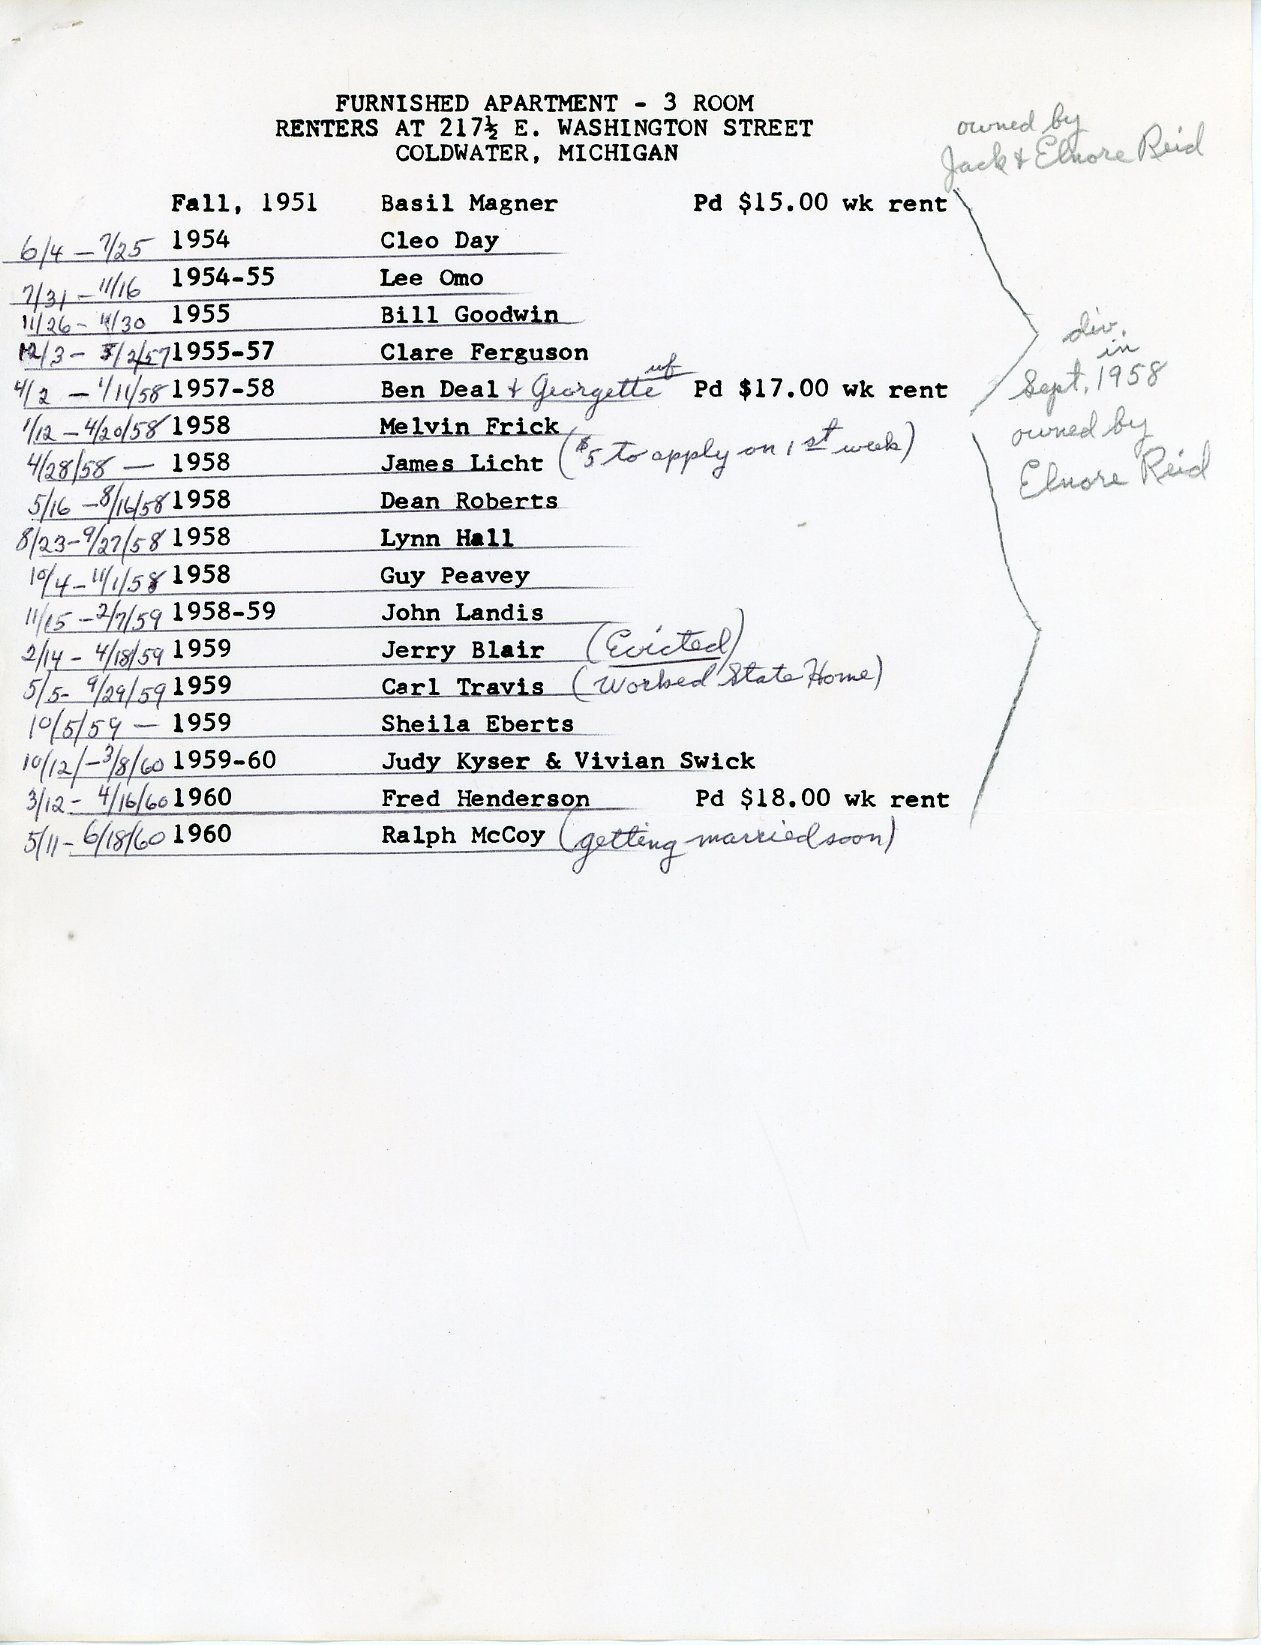 FURNISHED APARTMENT - 3 ROOM
RENTERS AT 217½ E. WASHINGTON STREET
COLDWATER, MICHIGAN
owned by
Jack & Elnore Reid
Fall, 1951 Basil Magner Pd $15.00 wk rent
6/4 - 7/25 1954 Cleo Day
7/31 - 11/16 1954-55 Lee Omo
11/26 - 4/30 1955 Bill Goodwin
12/3 - 3/2/57 1955-57 Clare Ferguson
div.
in
Sept, 1958
4/2 - 1/11/58 1957-58 Ben Deal & Georgette wf Pd $17.00 wk rent
1/12 - 4/20/58 1958 Melvin Frick
owned by
Elnore Reid
4/28/58 - 1958 James Licht ($5 to apply on 1st week)
5/16 - 8/16/58 1958 Dean Roberts
8/23 - 9/27/58 1958 Lynn Hall
10/4 - 11/1/58 1958 Guy Peavey
11/15 - 2/7/59 1958-59 John Landis
2/14 - 4/18/59 1959 Jerry Blair (Evicted)
5/5 - 9/29/59 1959 Carl Travis (Worked State Home)
10/5/59 - 1959 Sheila Eberts
10/12/ - 3/8/60 1959-60 Judy Kyser & Vivian Swick
3/12 - 4/16/60 1960 Fred Henderson Pd $18.00 wk rent
5/11 - 6/18/60 1960 Ralph McCoy (getting married soon)